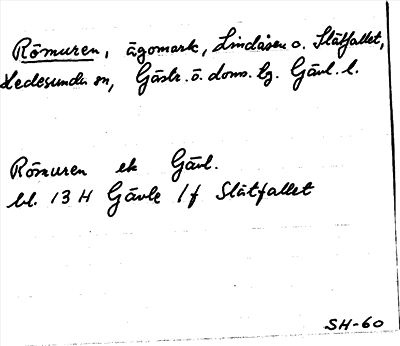 Römuren, ägomark, Lindåsen o. Slätfallet,
Hedesunda sn, Gästr. ö. doms. tg. Gävl. l.
Römuren ek Gävl.
bl. 13 H Gävle 1 f Slätfallet
SH-60